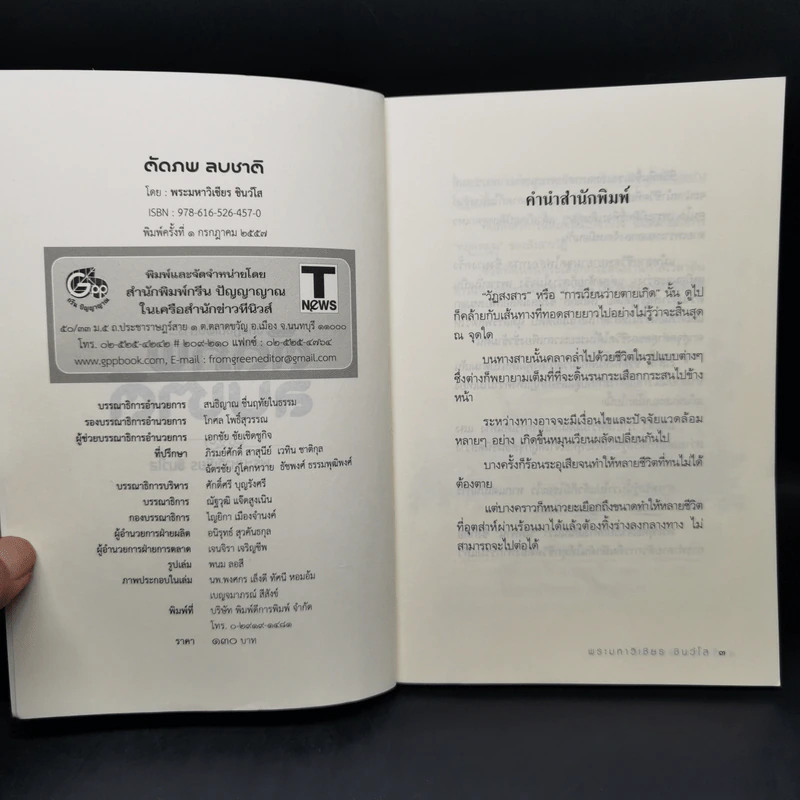 ตัดภพ ลบชาติ
โดย : พระมหาวิเชียร ชินวํโส
ISBN : 978-616-526-457-0
พิมพ์ครั้งที่ ๑ กรกฎาคม ๒๕๕๗
Gpp
กรีน ปัญญาญาณ
พิมพ์และจัดจำหน่ายโดย
สำนักพิมพ์กรีน ปัญญาญาณ
ในเครือสำนักข่าวทีนิวส์
T
NEWS
๕๐/๓๓ ม.๕ ถ.ประชาราษฎร์สาย ๑ ต.ตลาดขวัญ อ.เมือง จ.นนทบุรี ๑๑๐๐๐
โทร. ๐๒-๕๒๕-๔๒๔๒ # ๒๐๙-๒๑๐ แฟกซ์ : ๐๒-๕๒๕-๔๗๖๔
www.gppbook.com, E-mail : fromgreeneditor@gmail.com
บรรณาธิการอำนวยการ สนธิญาณ ชื่นฤทัยในธรรม
รองบรรณาธิการอำนวยการ โกศล โพธิ์สุวรรณ
ผู้ช่วยบรรณาธิการอำนวยการ เอกชัย ชัยเชิดชูกิจ
ที่ปรึกษา ภิรมย์ศักดิ์ สาสุนีย์ เวทิน ชาติกุล
ฉัตรชัย ภู่โคกหวาย ธัชพงศ์ ธรรมพุฒิพงศ์
บรรณาธิการบริหาร ศักดิ์ศรี บุญรังศรี
บรรณาธิการ ณัฐวุฒิ แจ๊ดสูงเนิน
กองบรรณาธิการ ไญยิกา เมืองจำนงค์
ผู้อำนวยการฝ่ายผลิต อนิรุทธ์ สุวคันธกุล
ผู้อำนวยการฝ่ายการตลาด เจนจิรา เจริญชีพ
รูปเล่ม พนม ลอสี
ภาพประกอบในเล่ม นพ.พงศกร เล็งดี ทัศนี หอมอ้ม
เบญจมาภรณ์ สีสังข์
พิมพ์ที่ บริษัท พิมพ์ดีการพิมพ์ จำกัด
โทร. ๐-๒๙๑๙-๑๔๘๑
ราคา ๑๓๐ บาท
คำนำสำนักพิมพ์
"วัฏสงสาร" หรือ "การเวียนว่ายตายเกิด" นั้น ดูไป
ก็คล้ายกับเส้นทางที่ทอดสายยาวไปอย่างไม่รู้ว่าจะสิ้นสุด
ณ จุดใด
บนทางสายนั้นคลาคล่ำไปด้วยชีวิตในรูปแบบต่างๆ
ซึ่งต่างก็พยายามเต็มที่ที่จะดิ้นรนกระเสือกกระสนไปข้าง
หน้า
ระหว่างทางอาจจะมีเงื่อนไขและปัจจัยแวดล้อม
หลายๆ อย่าง เกิดขึ้นหมุนเวียนผลัดเปลี่ยนกันไป
บางครั้งก็ร้อนระอุเสียจนทำให้หลายชีวิตที่ทนไม่ได้
ต้องตาย
แต่บางคราวก็หนาวยะเยือกถึงขนาดทำให้หลายชีวิต
ที่อุตส่าห์ผ่านร้อนมาได้แล้วต้องทิ้งร่างลงกลางทาง ไม่
สามารถจะไปต่อได้
พระมหาวิเชียร ชินวํโส ๓